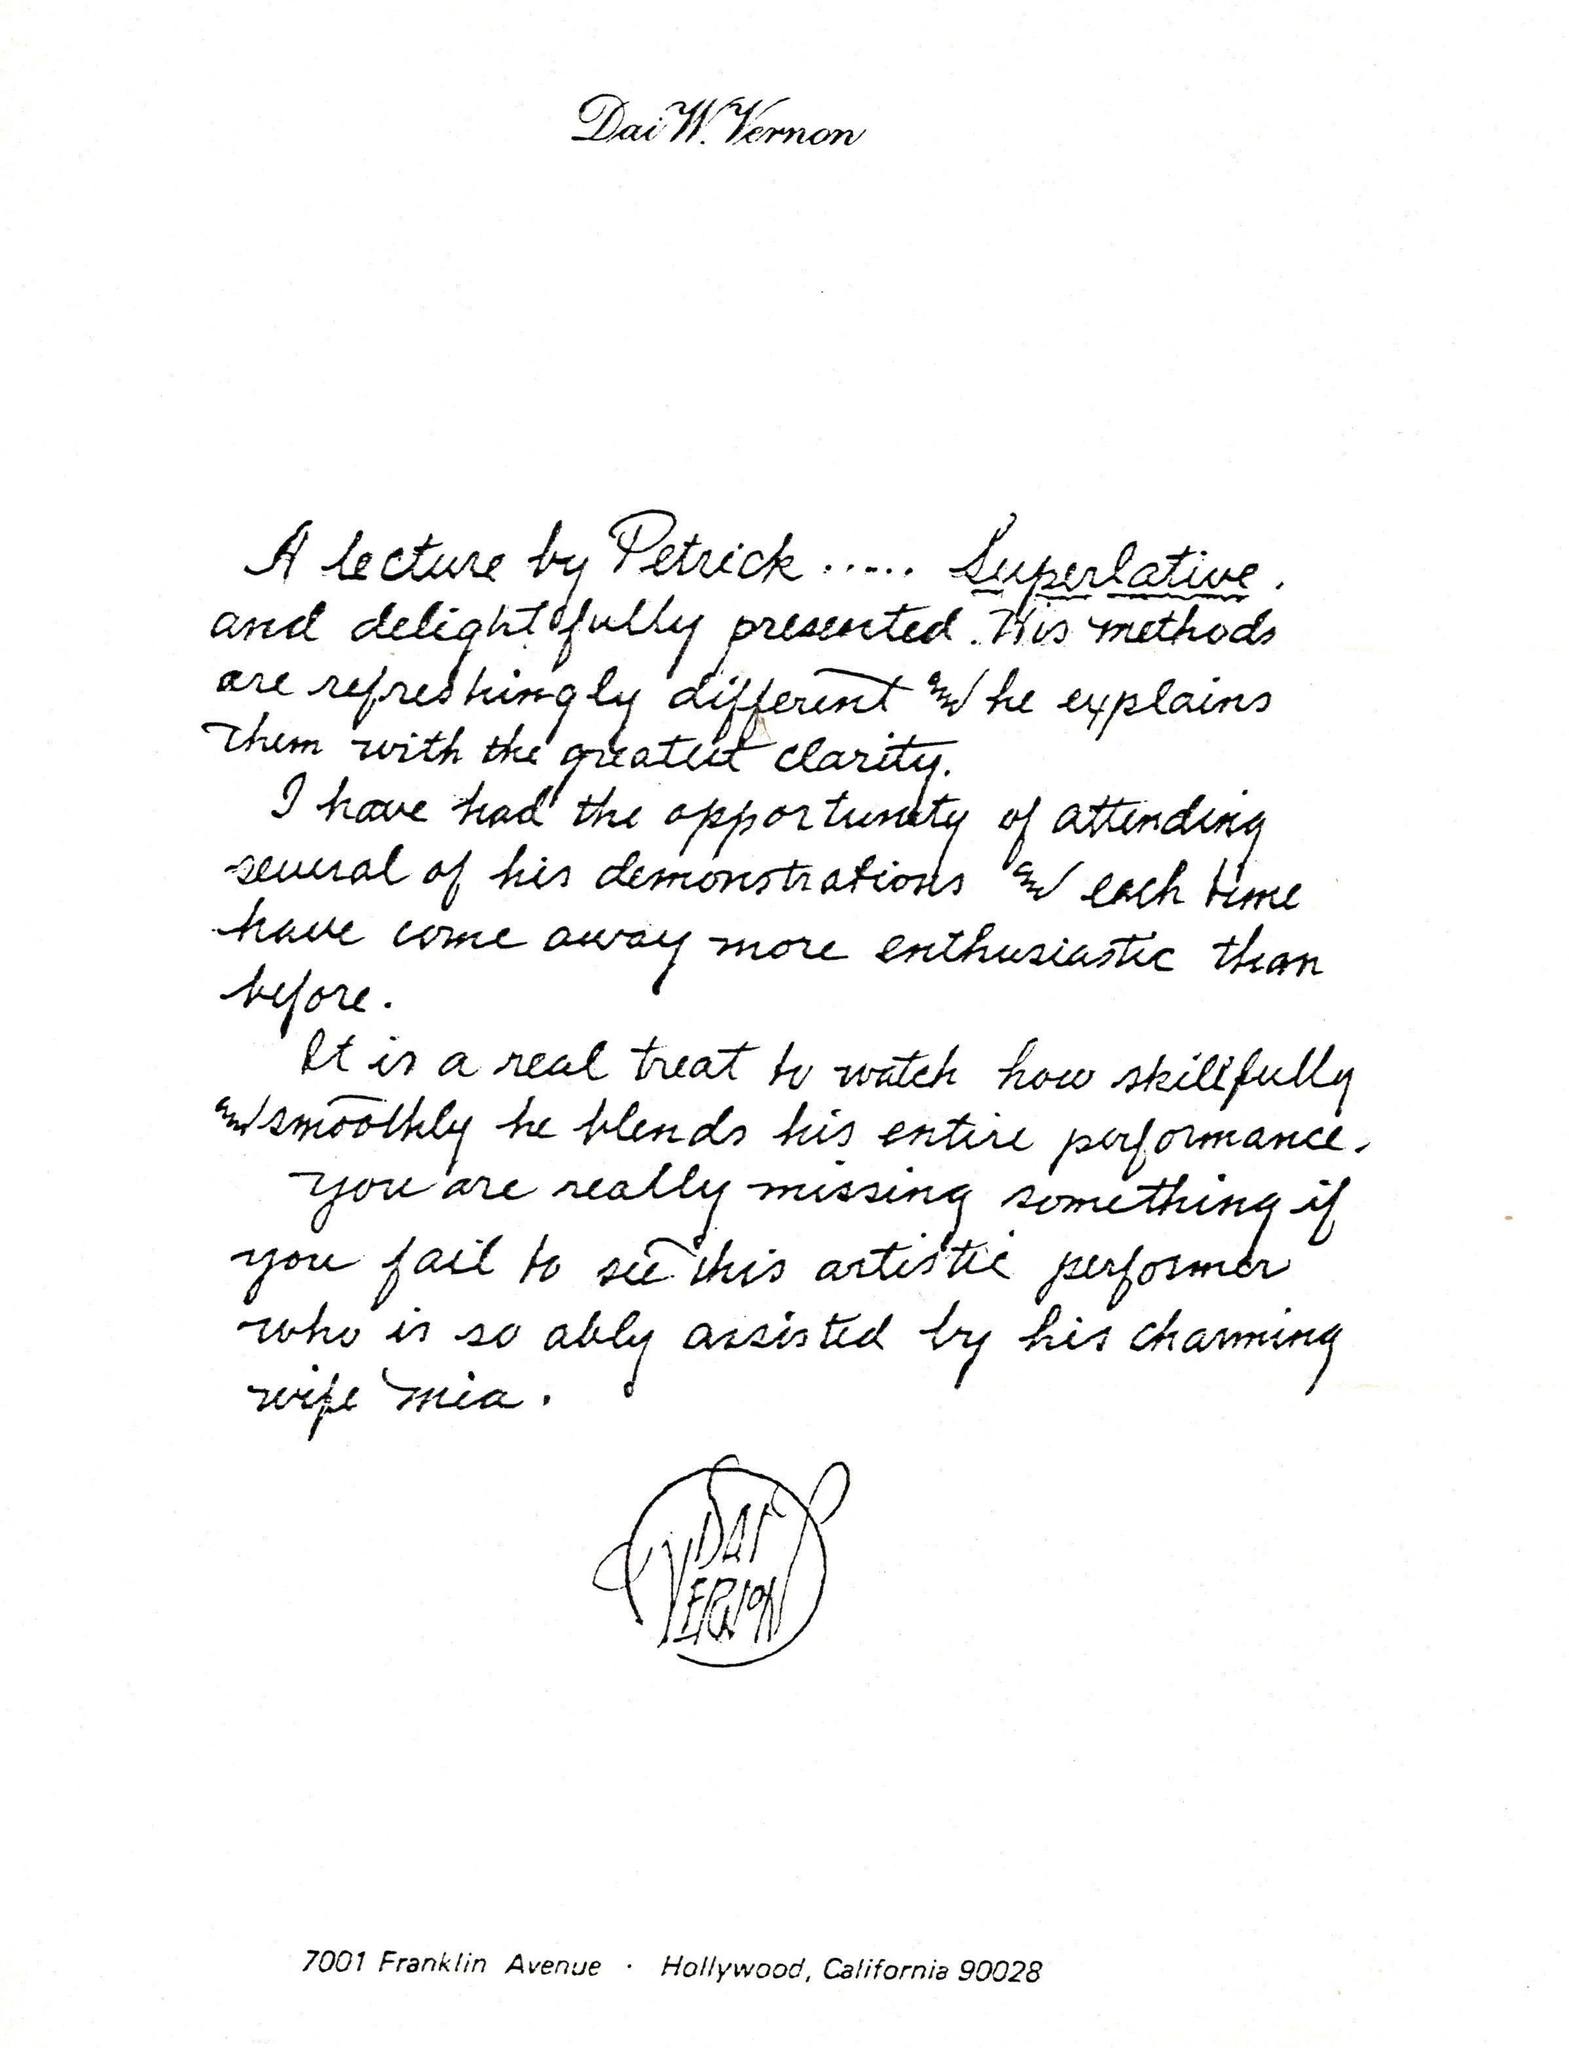 Dai W. Vernon
A lecture by Petrick ..... Superlative.
and delightfully presented. His methods
are refreshingly different and he explains
them with the greatest clarity.
I have had the opportunity of attending
several of his demonstrations and each time
have come away more enthusiastic than
before.
It is a real treat to watch how skillfully
and smoothly he blends his entire performance.
You are really missing something if
you fail to see this artistic performer
who is so ably assisted by his charming
wife Mia.
DAI
VERNON
7001 Franklin Avenue · Hollywood, California 90028